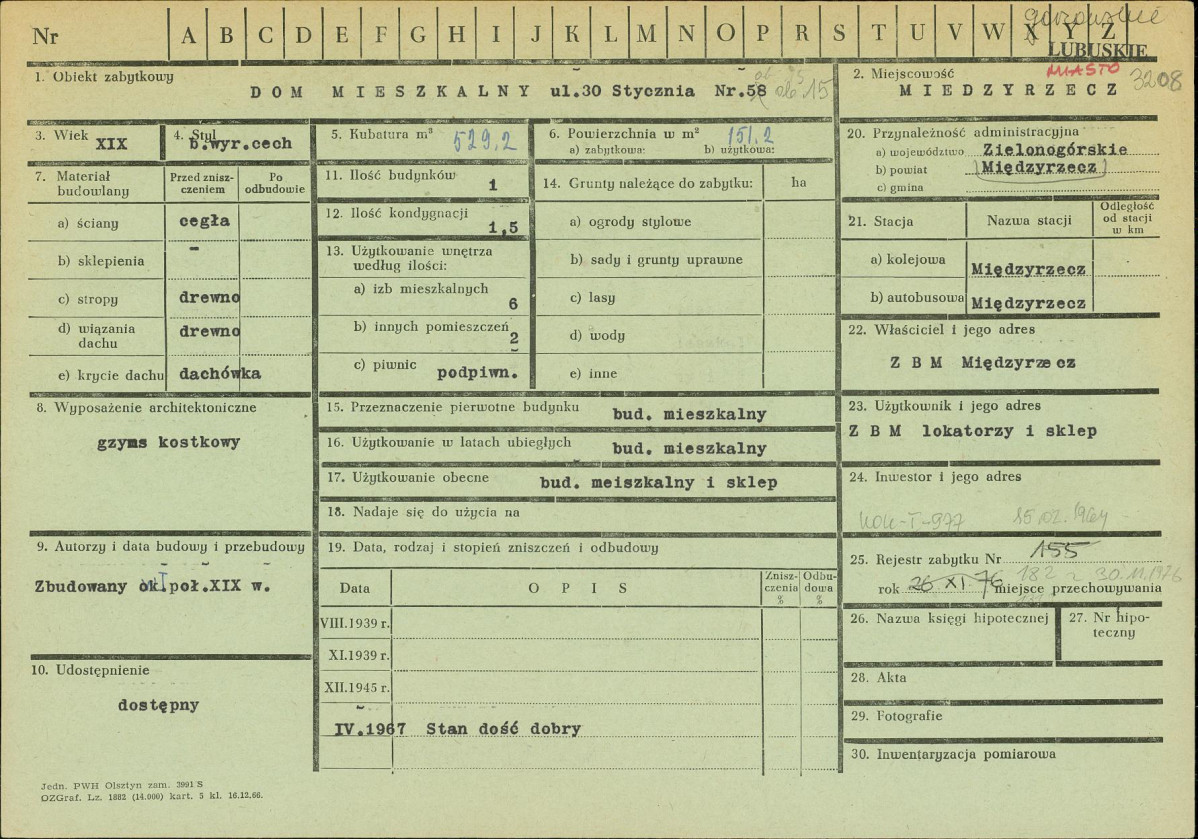 gorzowskie
Nr A B C D E F G H I J K L M N O P R S T U V W X Y Z
LUBUSKIE
MIASTO 3208
1. Obiekt zabytkowy
DOM MIESZKALNY ul.30 Stycznia Nr.58 ob 15
2. Miejscowość
MIEDZYRZECZ
3. Wiek XIX
4. Styl
b.wyr.cech
5. Kubatura m³ 529,2
6. Powierzchnia w m² 151,2
a) zabytkowa: b) użytkowa:
7. Materiał budowlany
Przed zniszczeniem
Po odbudowie
a) ściany cegła
b) sklepienia -
c) stropy drewno
d) wiązania dachu drewno
e) krycie dachu dachówka
8. Wyposażenie architektoniczne
gzyms kostkowy
9. Autorzy i data budowy i przebudowy
Zbudowany ok. poł.XIX w.
10. Udostępnienie
dostępny
11. Ilość budynków 1
12. Ilość kondygnacji 1,5
13. Użytkowanie wnętrza według ilości:
a) izb mieszkalnych 6
b) innych pomieszczeń 2
c) piwnic podpiwn.
14. Grunty należące do zabytku: ha
a) ogrody stylowe
b) sady i grunty uprawne
c) lasy
d) wody
e) inne
15. Przeznaczenie pierwotne budynku bud. mieszkalny
16. Użytkowanie w latach ubiegłych bud. mieszkalny
17. Użytkowanie obecne bud. meiszkalny i sklep
18. Nadaje się do użycia na
19. Data, rodzaj i stopień zniszczeń i odbudowy
Data OPIS Zniszczenia % Odbudowa %
VIII.1939 r.
XI.1939 r.
XII.1945 r.
IV.1967 Stan dość dobry
20. Przynależność administracyjna
a) województwo Zielonogórskie
b) powiat (Międzyrzecz)
c) gmina
21. Stacja Nazwa stacji Odległość od stacji w km
a) kolejowa Międzyrzecz
b) autobusowa Międzyrzecz
22. Właściciel i jego adres
Z B M Międzyrzecz
23. Użytkownik i jego adres
Z B M lokatorzy i sklep
24. Inwestor i jego adres
KOK-I-977 15.02.1964
25. Rejestr zabytku Nr 155
182 z 30.11.1976
rok 26 XI 76 miejsce przechowywania
26. Nazwa księgi hipotecznej
27. Nr hipoteczny
28. Akta
29. Fotografie
30. Inwentaryzacja pomiarowa
Jedn. PWH Olsztyn zam. 3991 S
OZGraf. Lz. 1882 (14.000) kart. 5 kl. 16.12.66.